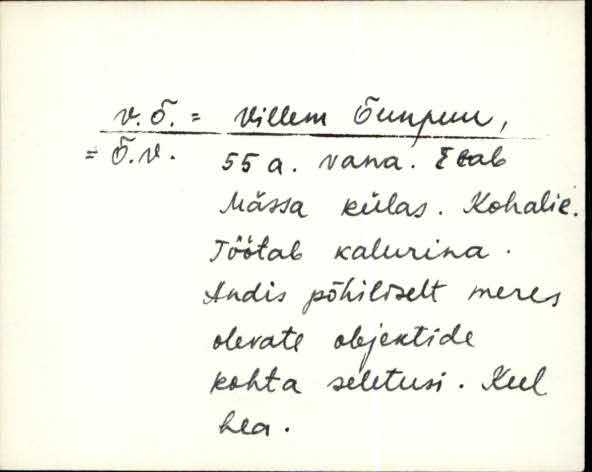 V.Õ. = Villem Õunpuu,
= Õ.V. 55 a. vana. Elab
Mässa külas. Kohalik.
Töötab kalurina.
Andis põhiliselt meres
olevate objektide
kohta seletusi. Keel
hea.